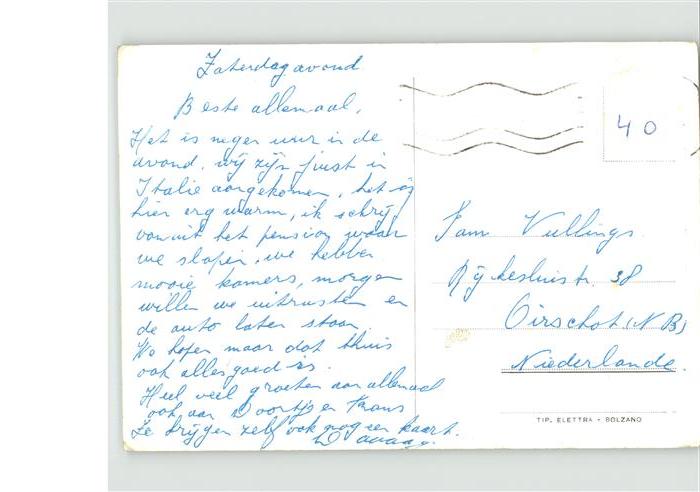 Zaterdagavond
Beste allemaal,
Het is negen uur in de
avond. wij zijn juist in
Italie aangekomen, het is
hier erg warm, ik schrijf
vanuit het pension waar
we slapen, we hebben
mooie kamers, morgen
willen we uitrusten en
de auto laten staan,
We hopen maar dat thuis
ook alles goed is.
Heel veel groeten aan allemaal
ook aan Doortje en Frans
Ze krijgen zelf ook nog een kaart.
40
Fam Vullings
Rijkesluisstr. 38
Oirschot (N B)
Niederlande
TIP. ELETTRA - BOLZANO